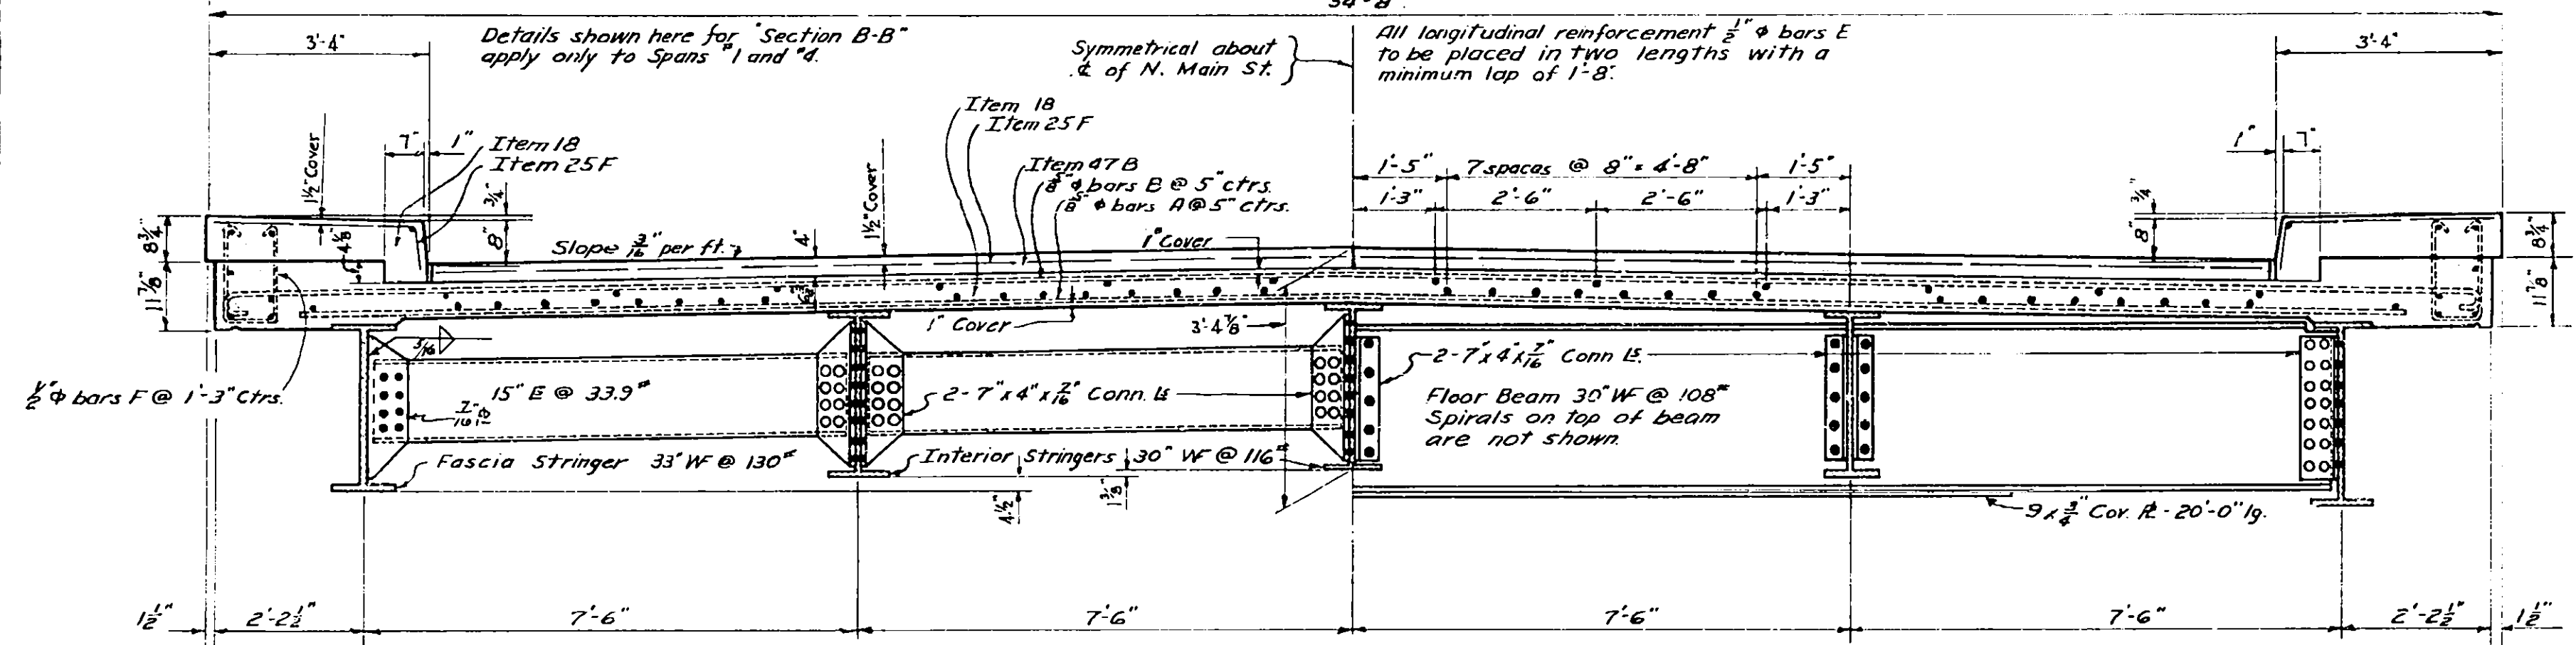 34'-8"
3'-4"
Details shown here for "Section B-B"
apply only to Spans #1 and #4.
Symmetrical about
℄ of N. Main St.
All longitudinal reinforcement ½" ϕ bars E
to be placed in two lengths with a
minimum lap of 1'-8".
3'-4"
Item 18
Item 25 F
1½" Cover
7"
1"
Item 18
Item 25 F
Item 47 B
⅝" ϕ bars B @ 5" ctrs.
⅝" ϕ bars A @ 5" ctrs.
1½" Cover
1'-5"
7 spaces @ 8" = 4'-8"
1'-5"
1'-3"
2'-6"
2'-6"
1'-3"
1"
7"
¾"
8"
8¾"
11⅞"
4⅛"
Slope 3/16" per ft.
4"
1" Cover
1" Cover
3'-4⅞"
¾"
8"
8¾"
11⅞"
5/16
½" ϕ bars F @ 1'-3" Ctrs.
15" [ @ 33.9#
2-7" x 4" x 7/16" Conn. Ls
2-7" x 4" x 7/16" Conn Ls.
Floor Beam 30" WF @ 108#
Spirals on top of beam
are not shown.
Fascia Stringer 33" WF @ 130#
Interior Stringers 30" WF @ 116#
4½"
1⅜"
9 x ¾" Cov. ℄ - 20'-0" lg.
1½"
2'-2½"
7'-6"
7'-6"
7'-6"
7'-6"
2'-2½"
1½"